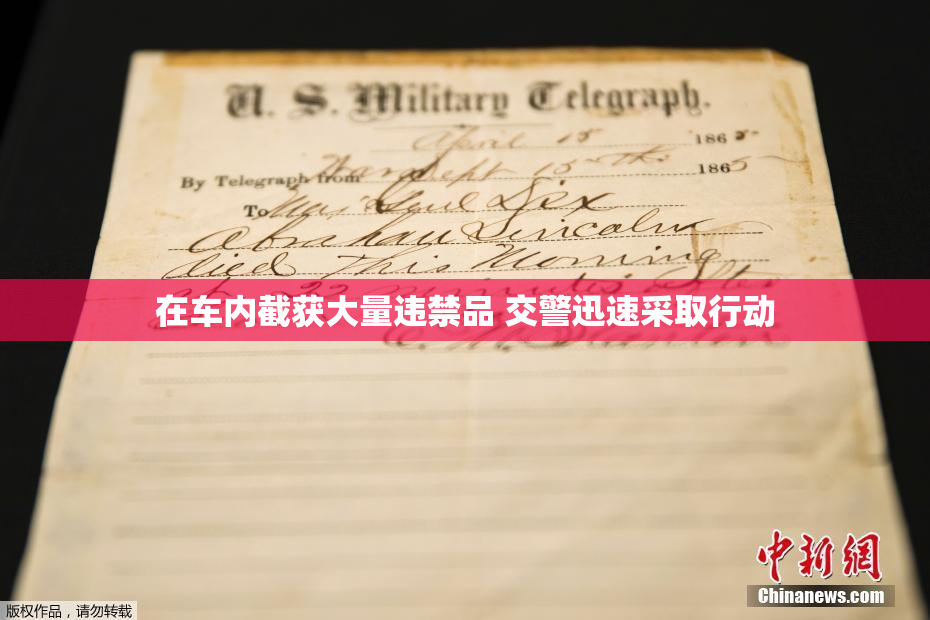 U. S. Military Telegraph.
April 15 1865-
By Telegraph from War Dept 15th 1865
To Maj Genl Dix
Abraham Lincoln
died This Morning
at 22 minutes after
在车内截获大量违禁品 交警迅速采取行动
中新网
Chinanews.com
版权作品，请勿转载